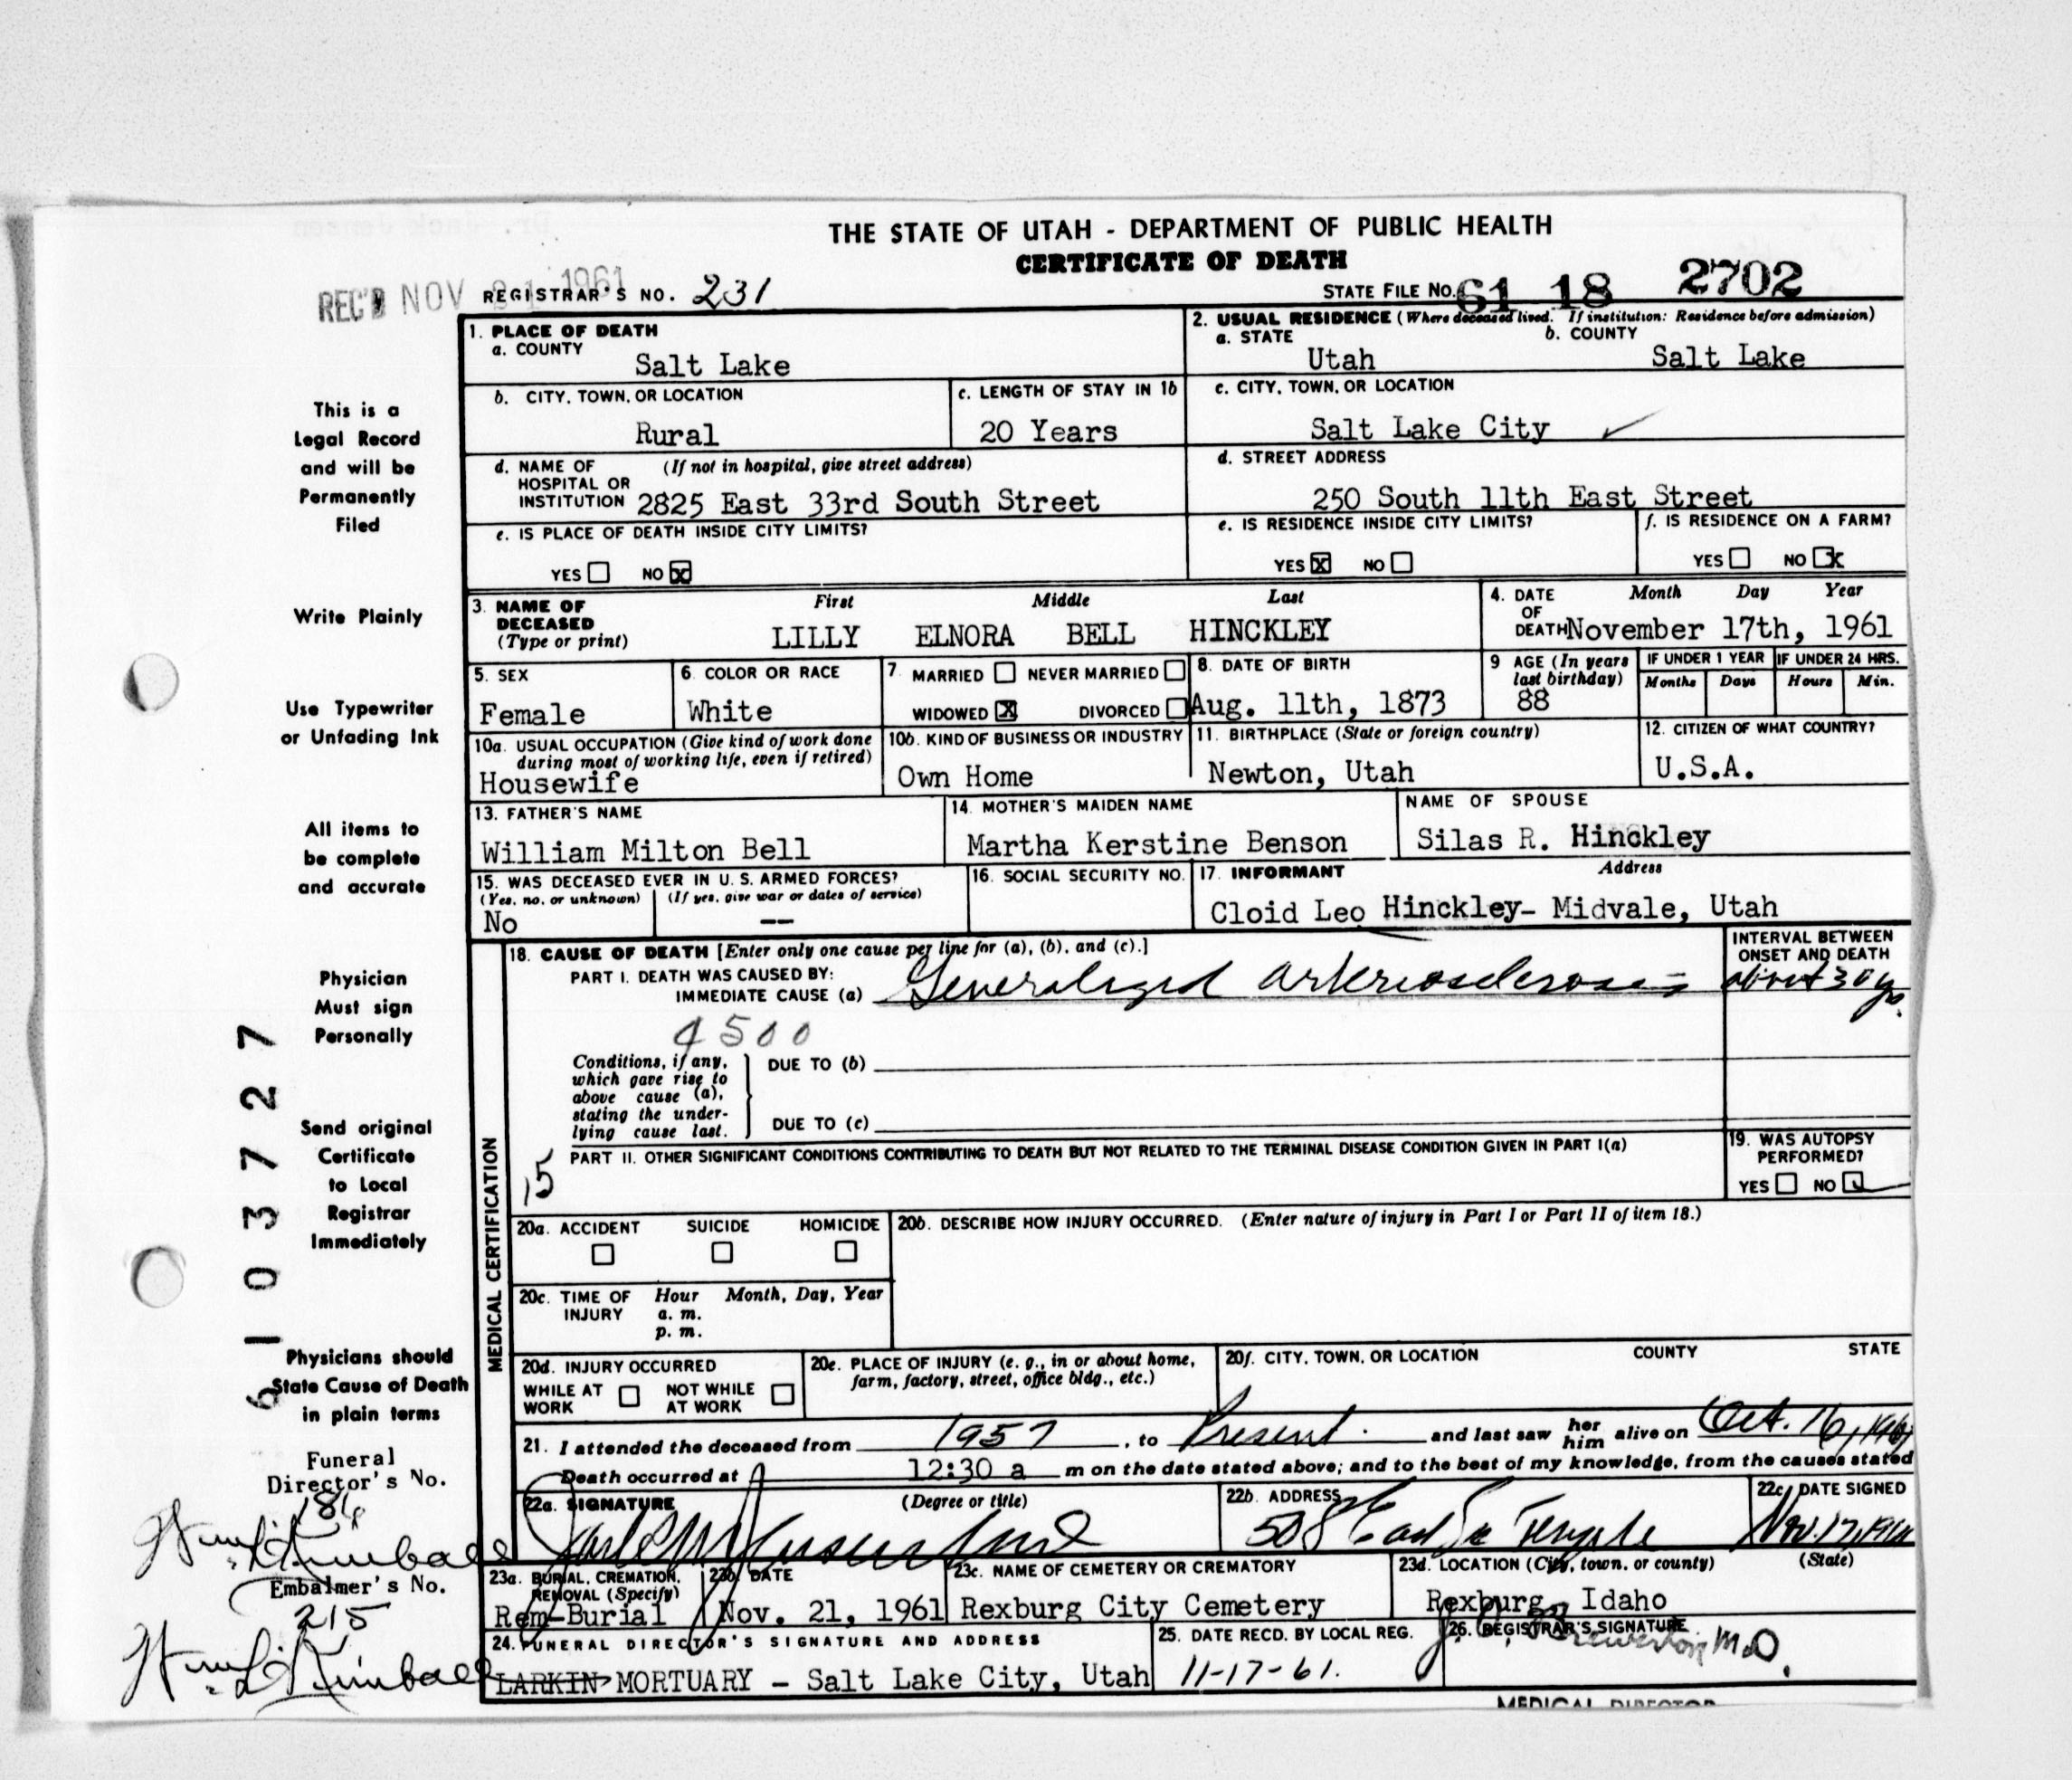 THE STATE OF UTAH - DEPARTMENT OF PUBLIC HEALTH
CERTIFICATE OF DEATH
REC'D NOV 21 1961
REGISTRAR'S NO. 231
STATE FILE NO. 61 18 2702
1. PLACE OF DEATH
a. COUNTY
Salt Lake
2. USUAL RESIDENCE (Where deceased lived. If institution: Residence before admission)
a. STATE
Utah
b. COUNTY
Salt Lake
b. CITY, TOWN, OR LOCATION
Rural
c. LENGTH OF STAY IN 1b
20 Years
c. CITY, TOWN, OR LOCATION
Salt Lake City
d. NAME OF HOSPITAL OR INSTITUTION (If not in hospital, give street address)
2825 East 33rd South Street
d. STREET ADDRESS
250 South 11th East Street
e. IS PLACE OF DEATH INSIDE CITY LIMITS?
YES NO X
e. IS RESIDENCE INSIDE CITY LIMITS?
YES X NO
f. IS RESIDENCE ON A FARM?
YES NO X
3. NAME OF DECEASED (Type or print)
First Middle Last
LILLY ELNORA BELL HINCKLEY
4. DATE OF DEATH Month Day Year
November 17th, 1961
5. SEX
Female
6. COLOR OR RACE
White
7. MARRIED NEVER MARRIED
WIDOWED X DIVORCED
8. DATE OF BIRTH
Aug. 11th, 1873
9 AGE (In years last birthday)
88
IF UNDER 1 YEAR
Months Days
IF UNDER 24 HRS.
Hours Min.
10a. USUAL OCCUPATION (Give kind of work done during most of working life, even if retired)
Housewife
10b. KIND OF BUSINESS OR INDUSTRY
Own Home
11. BIRTHPLACE (State or foreign country)
Newton, Utah
12. CITIZEN OF WHAT COUNTRY?
U.S.A.
13. FATHER'S NAME
William Milton Bell
14. MOTHER'S MAIDEN NAME
Martha Kerstine Benson
NAME OF SPOUSE
Silas R. Hinckley
15. WAS DECEASED EVER IN U. S. ARMED FORCES?
(Yes, no, or unknown) (If yes, give war or dates of service)
No --
16. SOCIAL SECURITY NO.
17. INFORMANT Address
Cloid Leo Hinckley- Midvale, Utah
MEDICAL CERTIFICATION
18. CAUSE OF DEATH [Enter only one cause per line for (a), (b), and (c).]
PART I. DEATH WAS CAUSED BY:
IMMEDIATE CAUSE (a) Generalized arteriosclerosis
INTERVAL BETWEEN ONSET AND DEATH
about 30 yrs.
4500
Conditions, if any, which gave rise to above cause (a), stating the underlying cause last.
DUE TO (b)
DUE TO (c)
15
PART II. OTHER SIGNIFICANT CONDITIONS CONTRIBUTING TO DEATH BUT NOT RELATED TO THE TERMINAL DISEASE CONDITION GIVEN IN PART I(a)
19. WAS AUTOPSY PERFORMED?
YES NO
20a. ACCIDENT SUICIDE HOMICIDE
20b. DESCRIBE HOW INJURY OCCURRED. (Enter nature of injury in Part I or Part II of item 18.)
20c. TIME OF INJURY Hour Month, Day, Year
a. m.
p. m.
20d. INJURY OCCURRED
WHILE AT WORK NOT WHILE AT WORK
20e. PLACE OF INJURY (e. g., in or about home, farm, factory, street, office bldg., etc.)
20f. CITY, TOWN, OR LOCATION COUNTY STATE
21. I attended the deceased from 1957, to Present. and last saw her him alive on Oct. 16, 1961
Death occurred at 12:30 a m on the date stated above; and to the best of my knowledge, from the causes stated
22a. SIGNATURE (Degree or title)
22b. ADDRESS
508 East So Temple
22c. DATE SIGNED
Nov. 17, 1961
23a. BURIAL, CREMATION, REMOVAL (Specify)
Rem-Burial
23b. DATE
Nov. 21, 1961
23c. NAME OF CEMETERY OR CREMATORY
Rexburg City Cemetery
23d. LOCATION (City, town, or county) (State)
Rexburg, Idaho
24. FUNERAL DIRECTOR'S SIGNATURE AND ADDRESS
LARKIN MORTUARY - Salt Lake City, Utah
25. DATE RECD. BY LOCAL REG.
11-17-61.
26. REGISTRAR'S SIGNATURE
M.D.
MEDICAL DIRECTOR
This is a
Legal Record
and will be
Permanently
Filed
Write Plainly
Use Typewriter
or Unfading Ink
All items to
be complete
and accurate
Physician
Must sign
Personally
Send original
Certificate
to Local
Registrar
Immediately
Physicians should
State Cause of Death
in plain terms
Funeral
Director's No.
186
Embalmer's No.
215
6103727